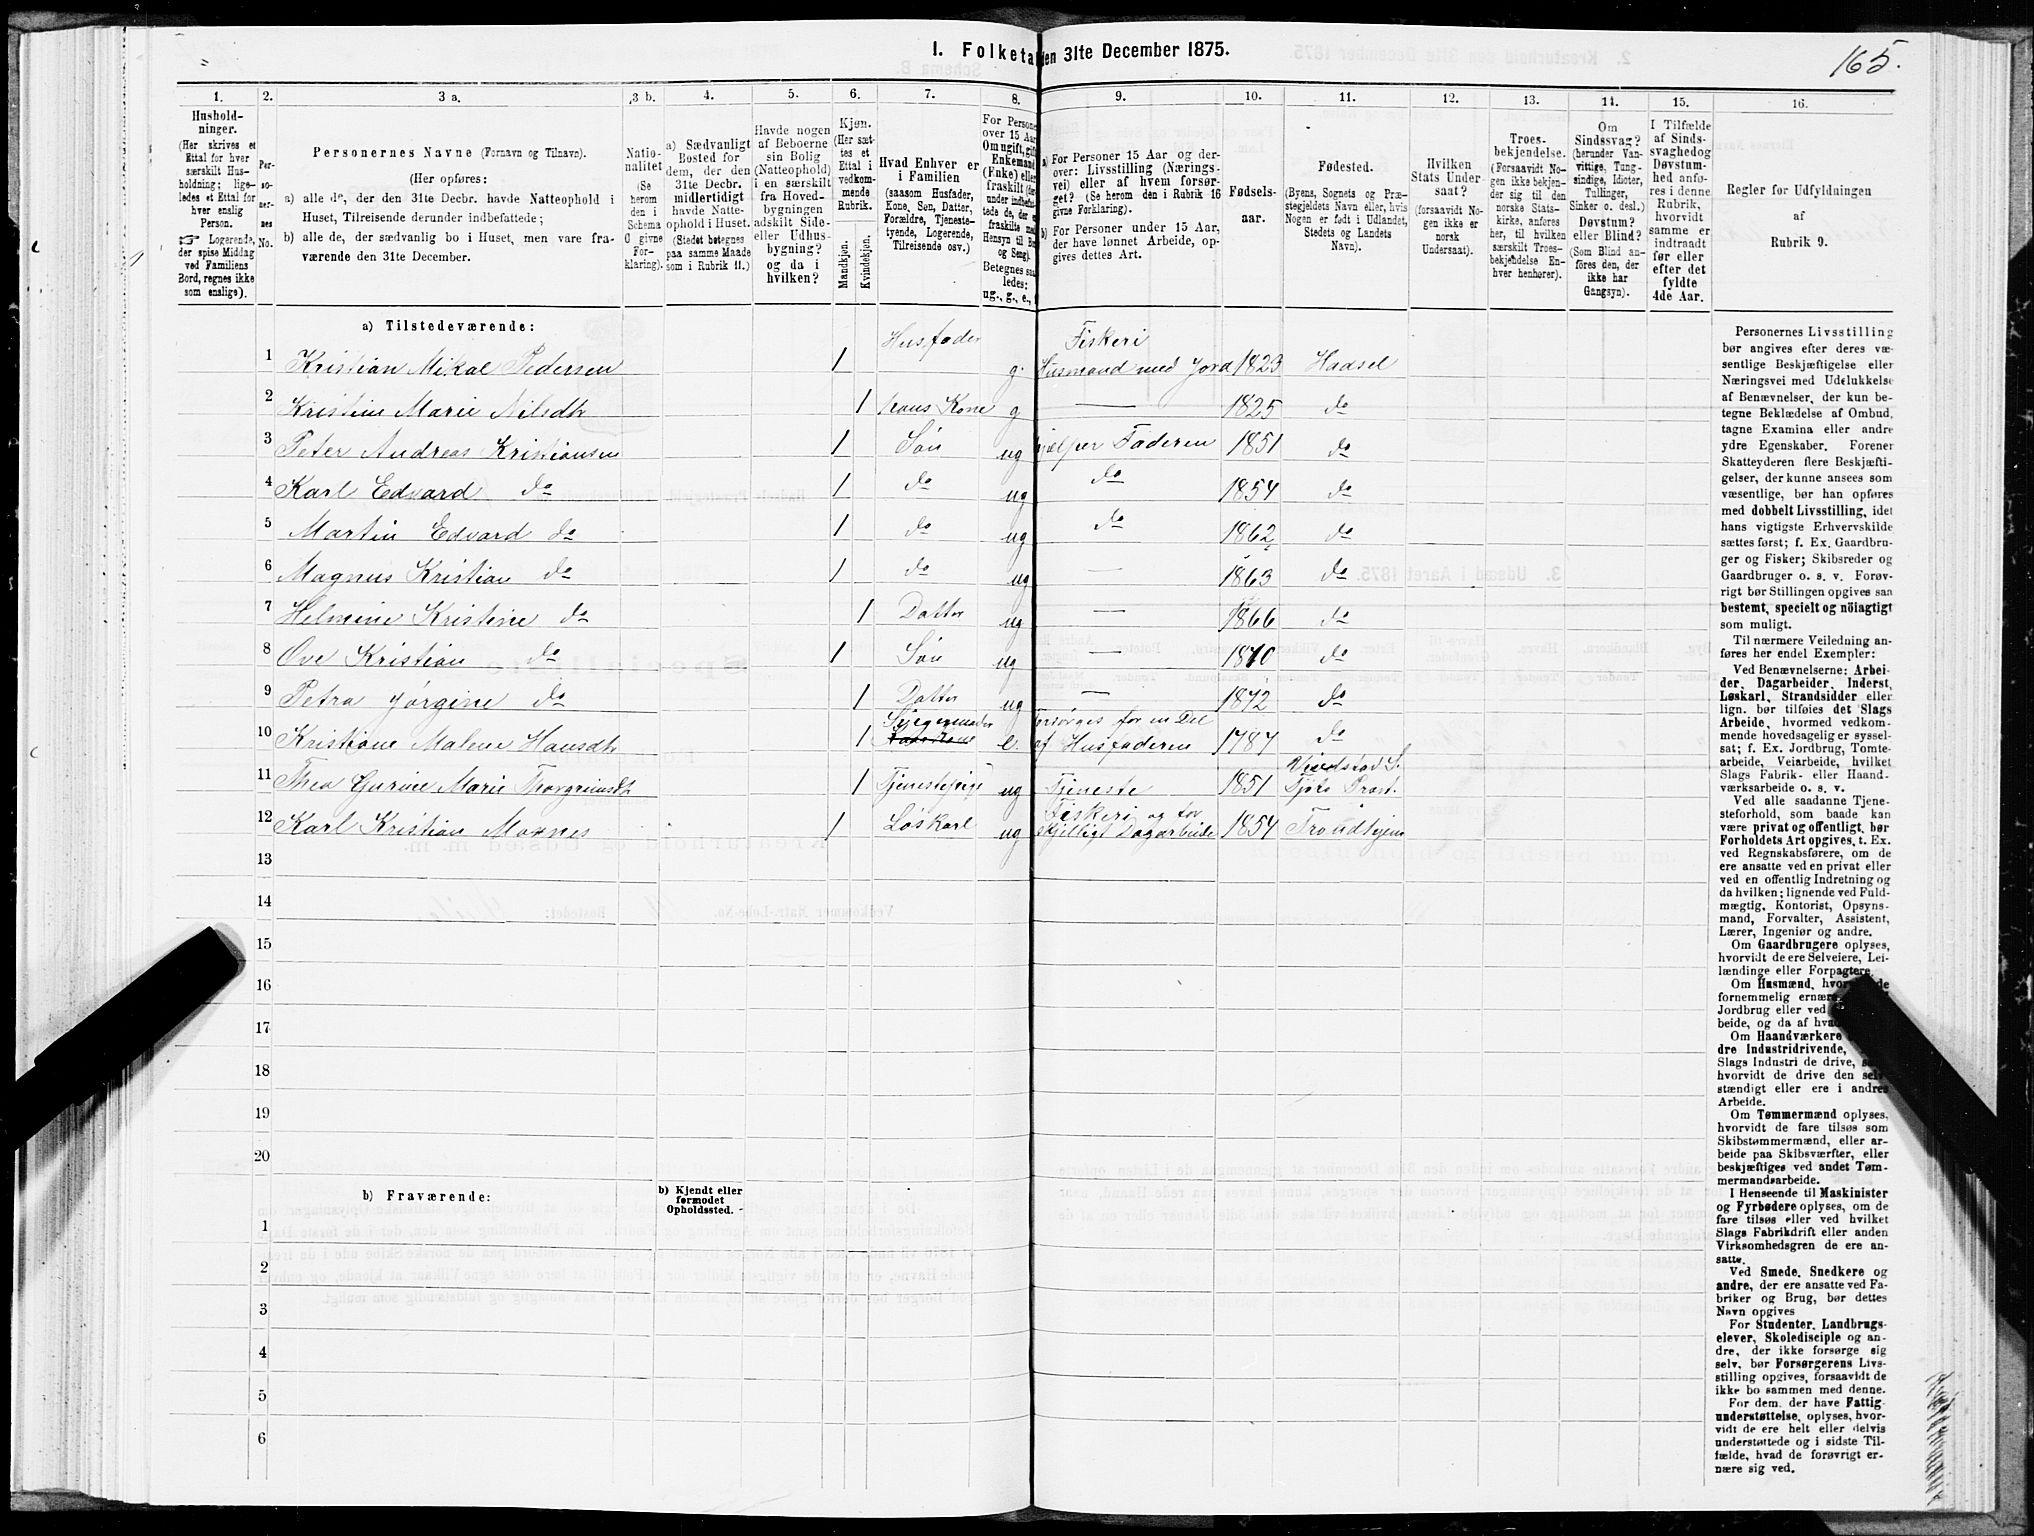 165.
I. Folketa
den 31te December 1875.
1.
2.
3 a.
3 b.
4.
5.
6.
7.
8.
9.
10.
11.
12.
13.
14.
15.
16.
Hushold-
ninger.
(Her skrives et
Ettal for hver
særskilt Hus-
holdning; lige-
ledes et Ettal for
hver enslig
Person.
☞ Logerende,
der spise Middag
ved Familiens
Bord, regnes ikke
som enslige).
Per-
so-
ner-
nes
No.
Personernes Navne (Fornavn og Tilnavn).
(Her opføres:
a) alle de, der den 31te Decbr. havde Natteophold i
Huset, Tilreisende derunder indbefattede;
b) alle de, der sædvanlig bo i Huset, men vare fra-
værende den 31te December.
Natio-
nalitet
(Se
herom
den i
Schema
C givne
For-
klaring).
a) Sædvanligt
Bosted for
dem, der den
31te Decbr.
midlertidigt
havde Natte-
ophold i Huset.
(Stedet betegnes
paa samme Maade
som i Rubrik 11.)
Havde nogen
af Beboerne
sin Bolig
(Natteophold)
i en særskilt
fra Hoved-
bygningen
adskilt Side-
eller Udhus-
bygning?
og da i
hvilken?
Kjøn.
(Her sæt-
tes et
Ettal i
vedkom-
mende
Rubrik.
Mandkjøn.
Kvindekjøn.
Hvad Enhver er
i Familien
(saasom Husfader,
Kone, Søn, Datter,
Forældre, Tjeneste-
tyende, Logerende,
Tilreisende osv.)
For Person
over 15 Aar
Om ugift, gift
Enkemand
(Enke) eller
fraskilt (der
under indbefat-
tede de, der e
fraskilte med
Hensyn til Bo
og Seng).
Betegnes saa
ledes:
ug., g., e.,
a) For Personer 15 Aar og der-
over: Livsstilling (Nærings-
vei) eller af hvem forsør-
get? (Se herom den i Rubrik 16
givne Forklaring).
b) For Personer under 15 Aar,
der have lønnet Arbeide, op-
gives dettes Art.
Fødsels-
aar.
Fødested.
(Byens, Sognets og Præ-
stegjeldets Navn eller, hvis
Nogen er født i Udlandet,
Stedets og Landets
Navn).
Hvilken
Stats Under-
saat?
(forsaavidt No-
gen ikke er
norsk
Undersaat).
Troes-
bekjendelse.
(Forsaavidt No-
gen ikke bekjen-
der sig til den
norske Stats-
kirke, anføres
her, til hvilken
særskilt Troes-
bekjendelse En-
hver henhører).
Om
Sindssvag?
(herunder Van-
vittige, Idioter,
Tullinger,
Sinker o. desl.)
Døvstum?
eller Blind?
(Som Blind an-
føres den, der
ikke har
Gangsyn).
I Tilfælde
af Sinds-
svaghed og
Døvstum-
hed anfø-
res i denne
Rubrik,
hvorvidt
samme er
indtraadt
før eller
efter det
fyldte
4de Aar.
Regler for Udfyldningen
af
Rubrik 9.
a) Tilstedeværende:
1 Kristian Mikal Pedersen 1 Husfader g. Fiskeri Husmand med Jord 1823 Hadsel
2 Kristine Marie Nilsdtr 1 hans Kone g — 1825 do
3 Peter Andreas Kristiansen 1 Søn ug hjælper Faderen 1851 do
4 Karl Edvard do 1 do ug do 1854 do
5 Martin Edvard do 1 do ug do 1862 do
6 Magnus Kristian do 1 do ug — 1863 do
7 Helmine Kristine do 1 Datter ug — 1866 do
8 Ove Kristian do 1 Søn ug — 1870 do
9 Petra Jørgine do 1 Datter ug — 1872 do
10 Kristiane Malene Hansdtr 1 Svigermoder e. Forsørges for en Del af Husfaderen 1787
11 Thea Gurine Marie Thorgrimsdtr 1 Tjenestepige ug Tjeneste 1851
12 Karl Kristian Moxnes 1 Løskarl ug Fiskeri og for skjelligt Dagarbeide 1854 Trondhjem
13
14
15
16
17
18
19
20
b) Fraværende:
b) Kjendt eller
formodet
Opholdssted.
1
2
3
4
5
6
Personernes Livsstilling
bør angives efter deres væ-
sentlige Beskjæftigelse eller
Næringsvei med Udelukkelse
af Benævnelser, der kun be-
tegne Beklædelse af Ombud,
tagne Examina eller andre
ydre Egenskaber. Forener
Skatteyderen flere Beskjæfti-
gelser, der kunne ansees som
væsentlige, bør han opføres
med dobbelt Livsstilling, idet
hans vigtigste Erhvervskilde
sættes først; f. Ex. Gaardbru-
ger og Fisker; Skibsreder og
Gaardbruger o. s. v. Forøv-
rigt bør Stillingen opgives saa
bestemt, specielt og nöiagtigt
som muligt.
Til nærmere Veiledning an-
føres her endel Exempler:
Ved Benævnelserne: Arbei-
der, Dagarbeider, Inderst,
Løskarl, Strandsidder eller
lign. bør tilføies det Slags
Arbeide, hvormed vedkom-
mende hovedsagelig er syssel-
sat; f. Ex. Jordbrug, Tomte-
arbeide, Veiarbeide, hvilket
Slags Fabrik- eller Haand-
værksarbeide o. s. v.
Ved alle saadanne Tjene-
steforhold, som baade kan
være privat og offentligt, bør
Forholdets Art opgives, t. Ex.
ved Regnskabsførere, om de
ere ansatte ved en privat eller
ved en offentlig Indretning og
da hvilken; lignende ved Fuld-
mægtig, Kontorist, Opsyns-
mand, Forvalter, Assistent,
Lærer, Ingeniør og andre.
Om Gaardbrugere oplyses,
hvorvidt de ere Selveiere, Lei-
lændinge eller Forpagtere.
Om Husmænd, hvor de
fornemmelig ernære
Jordbrug eller ved
beide, og da af hvad
Om Haandværkere
dre Industridrivende,
Slags Industri de drive,
hvorvidt de drive den selv-
stændigt eller ere i andres
Arbeide.
Om Tømmermænd oplyses,
hvorvidt de fare tilsøs som
Skibstømmermænd, eller ar-
beide paa Skibsværfter, eller
beskjæftiges ved andet Tøm-
mermandsarbeide.
I Henseende til Maskinister
og Fyrbødere oplyses, om de
fare tilsøs eller ved hvilket
Slags Fabrikdrift eller anden
Virksomhedsgren de ere an-
satte.
Ved Smede, Snedkere og
andre, der ere ansatte ved Fa-
briker og Brug, bør dettes
Navn opgives
For Studenter, Landbrugs-
elever, Skoledisciple og an-
dre, der ikke forsørge sig
selv, bør Forsørgerens Livs-
stilling opgives, forsaavidt de
ikke bo sammen med denne.
For dem, der have Fattig-
understøttelse, oplyses, hvor-
vidt de ere helt eller delvis
understøttede og i sidste Til-
fælde, hvad de forøvrigt er-
nære sig ved.